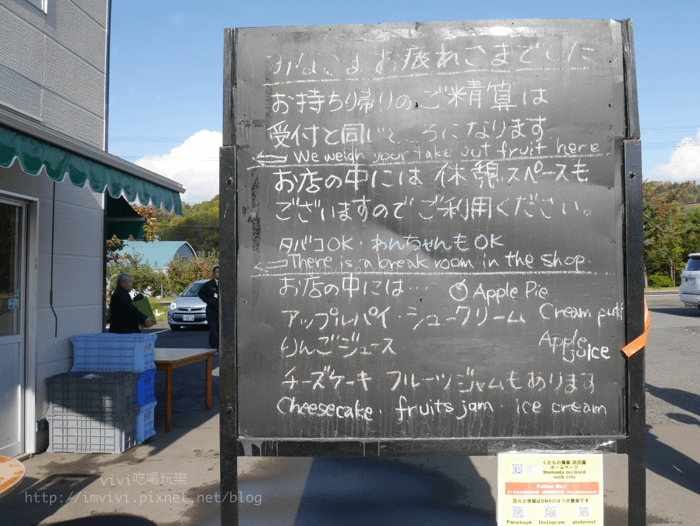 みなさまお疲れさまでした
お持ち帰りのご精算は
受付と同じところになります
We weigh your take out fruit here.
お店の中には休憩スペースも
ございますのでご利用ください。
タバコOK・わんちゃんもOK
There is a break room in the shop.
お店の中には…
Apple Pie
アップルパイ・シュークリーム Cream puff
りんごジュース Apple juice
チーズケーキ フルーツジャムもあります
Cheesecake・fruits jam・ice cream
ホームページ
Hamada orchard
web site
Follow Me!
Facebook Instagram pinterest
vivi吃喝玩樂
http://imvivi.pixnet.net/blog